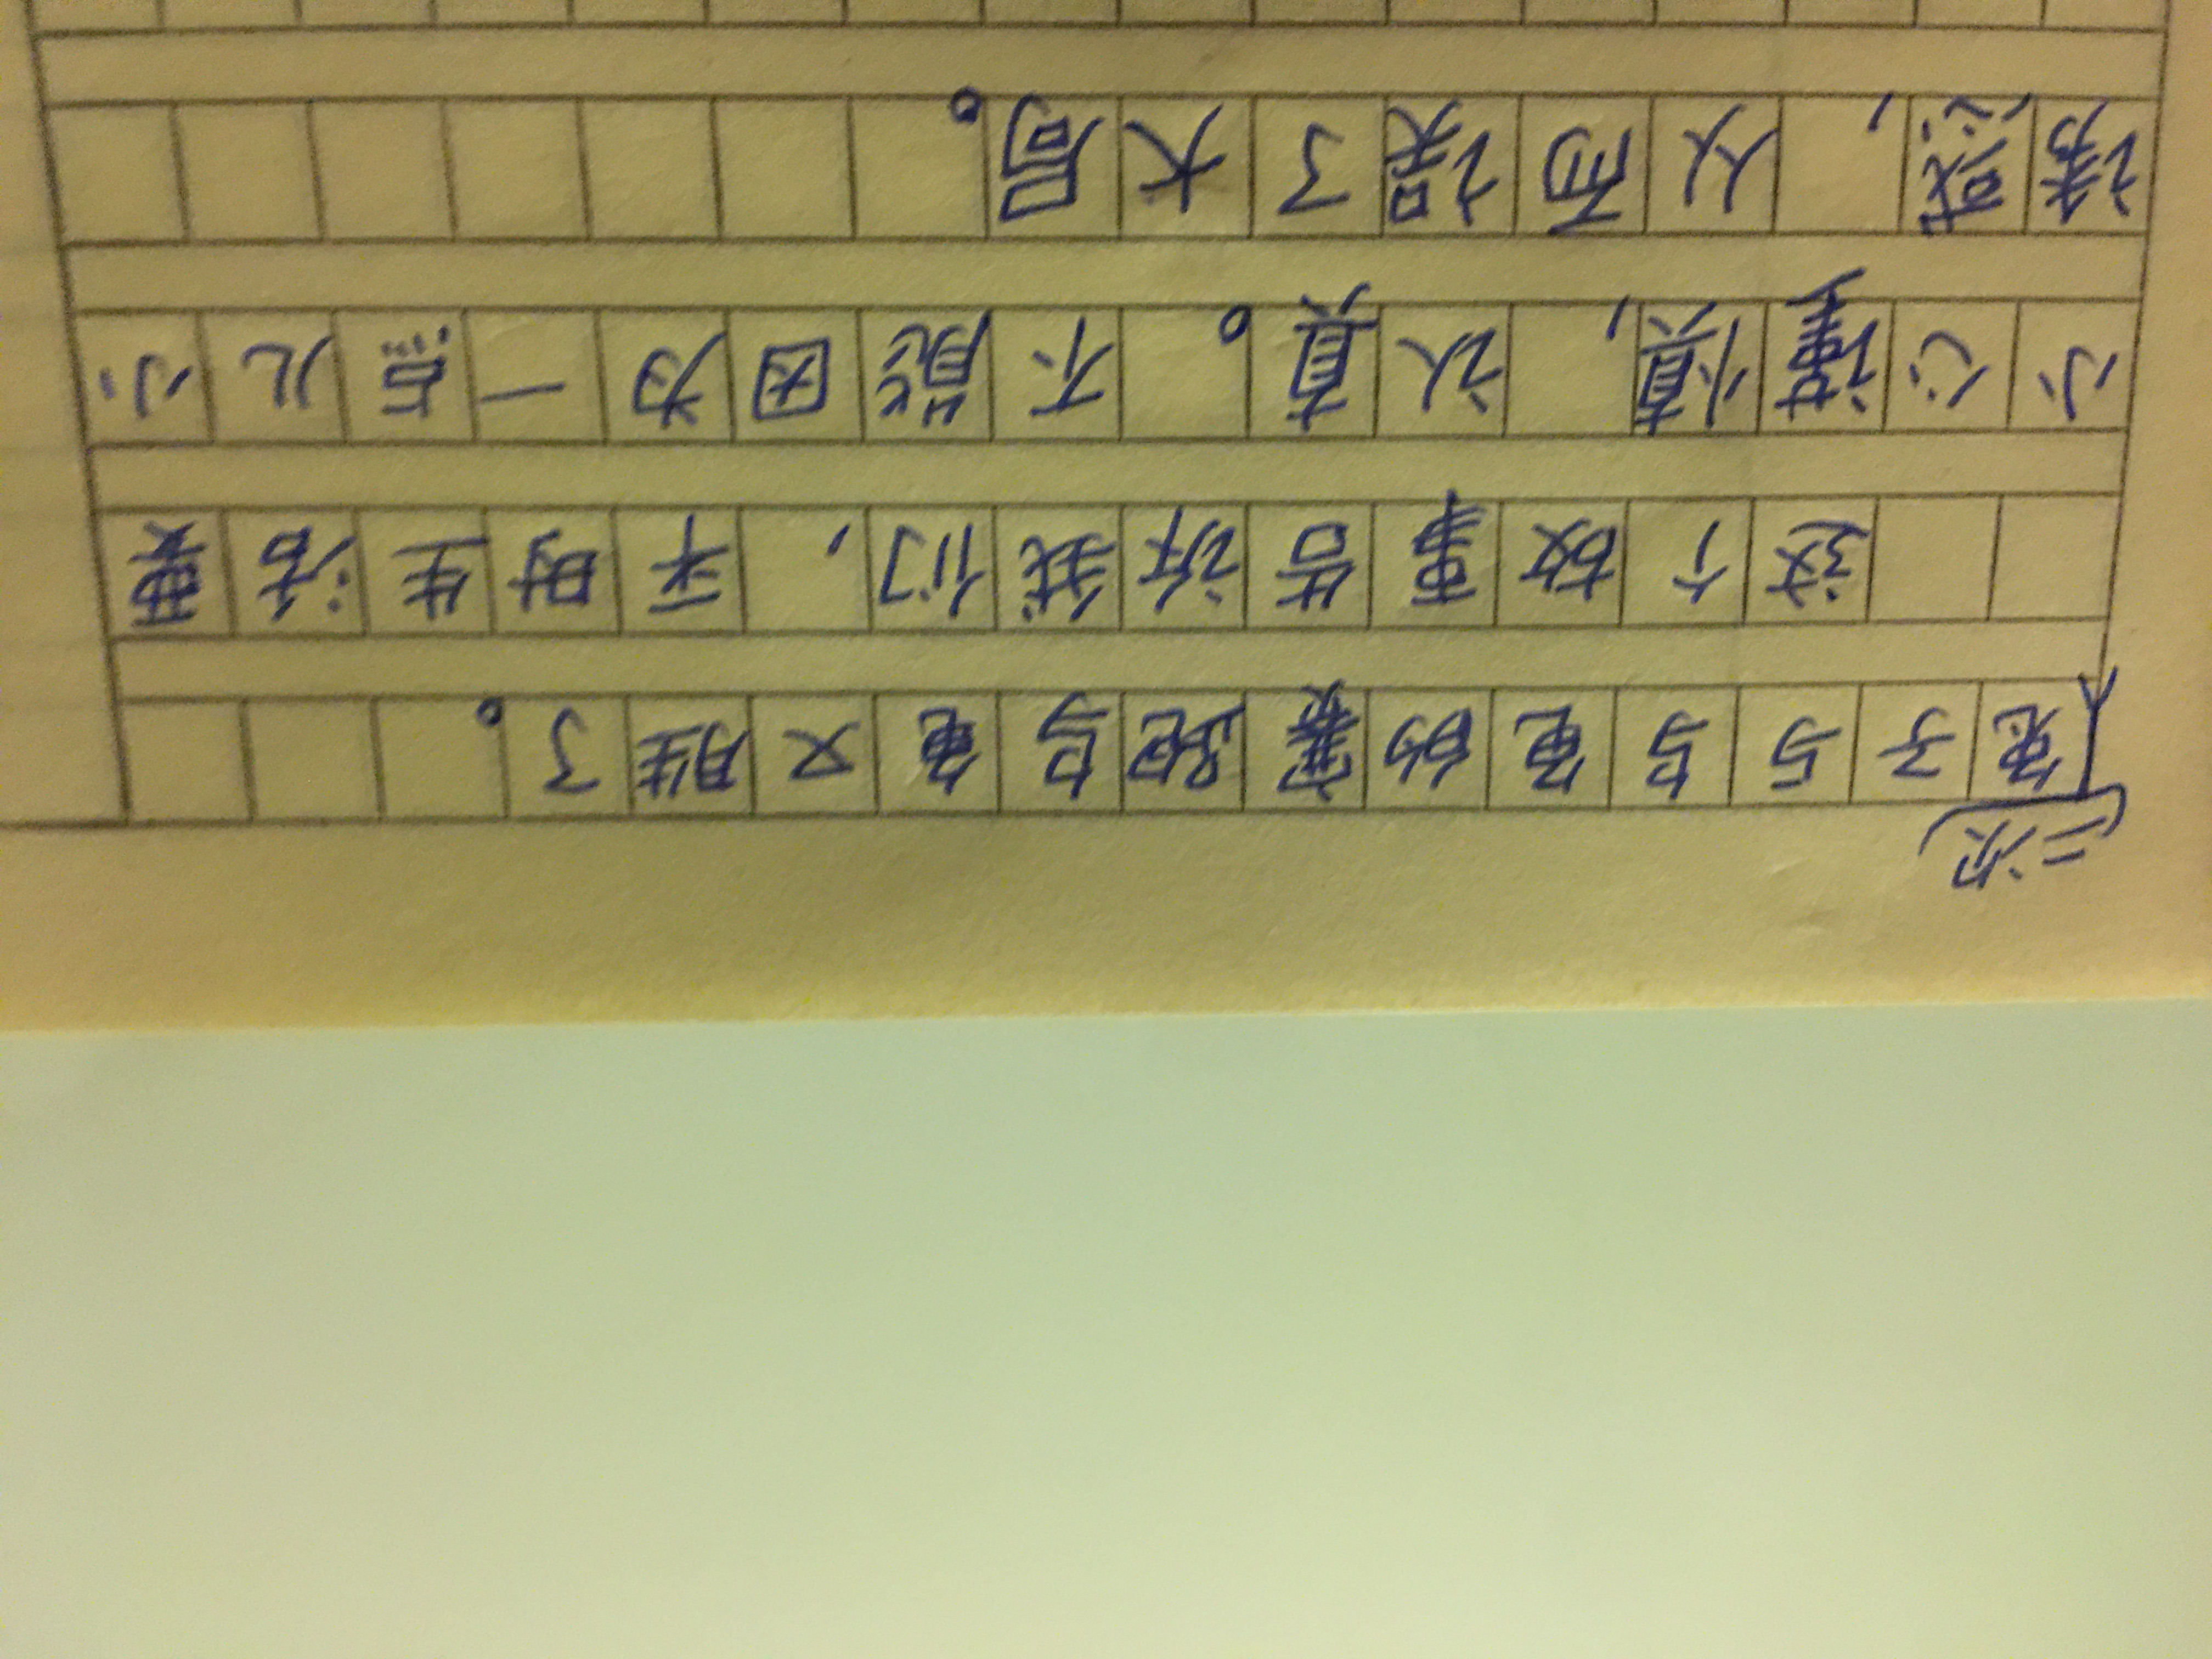 二次
兔子与乌龟的赛跑乌龟又胜了。
这个故事告诉我们，平时生活要
小心谨慎，认真。不能因为一点儿小
诱惑，从而误了大局。